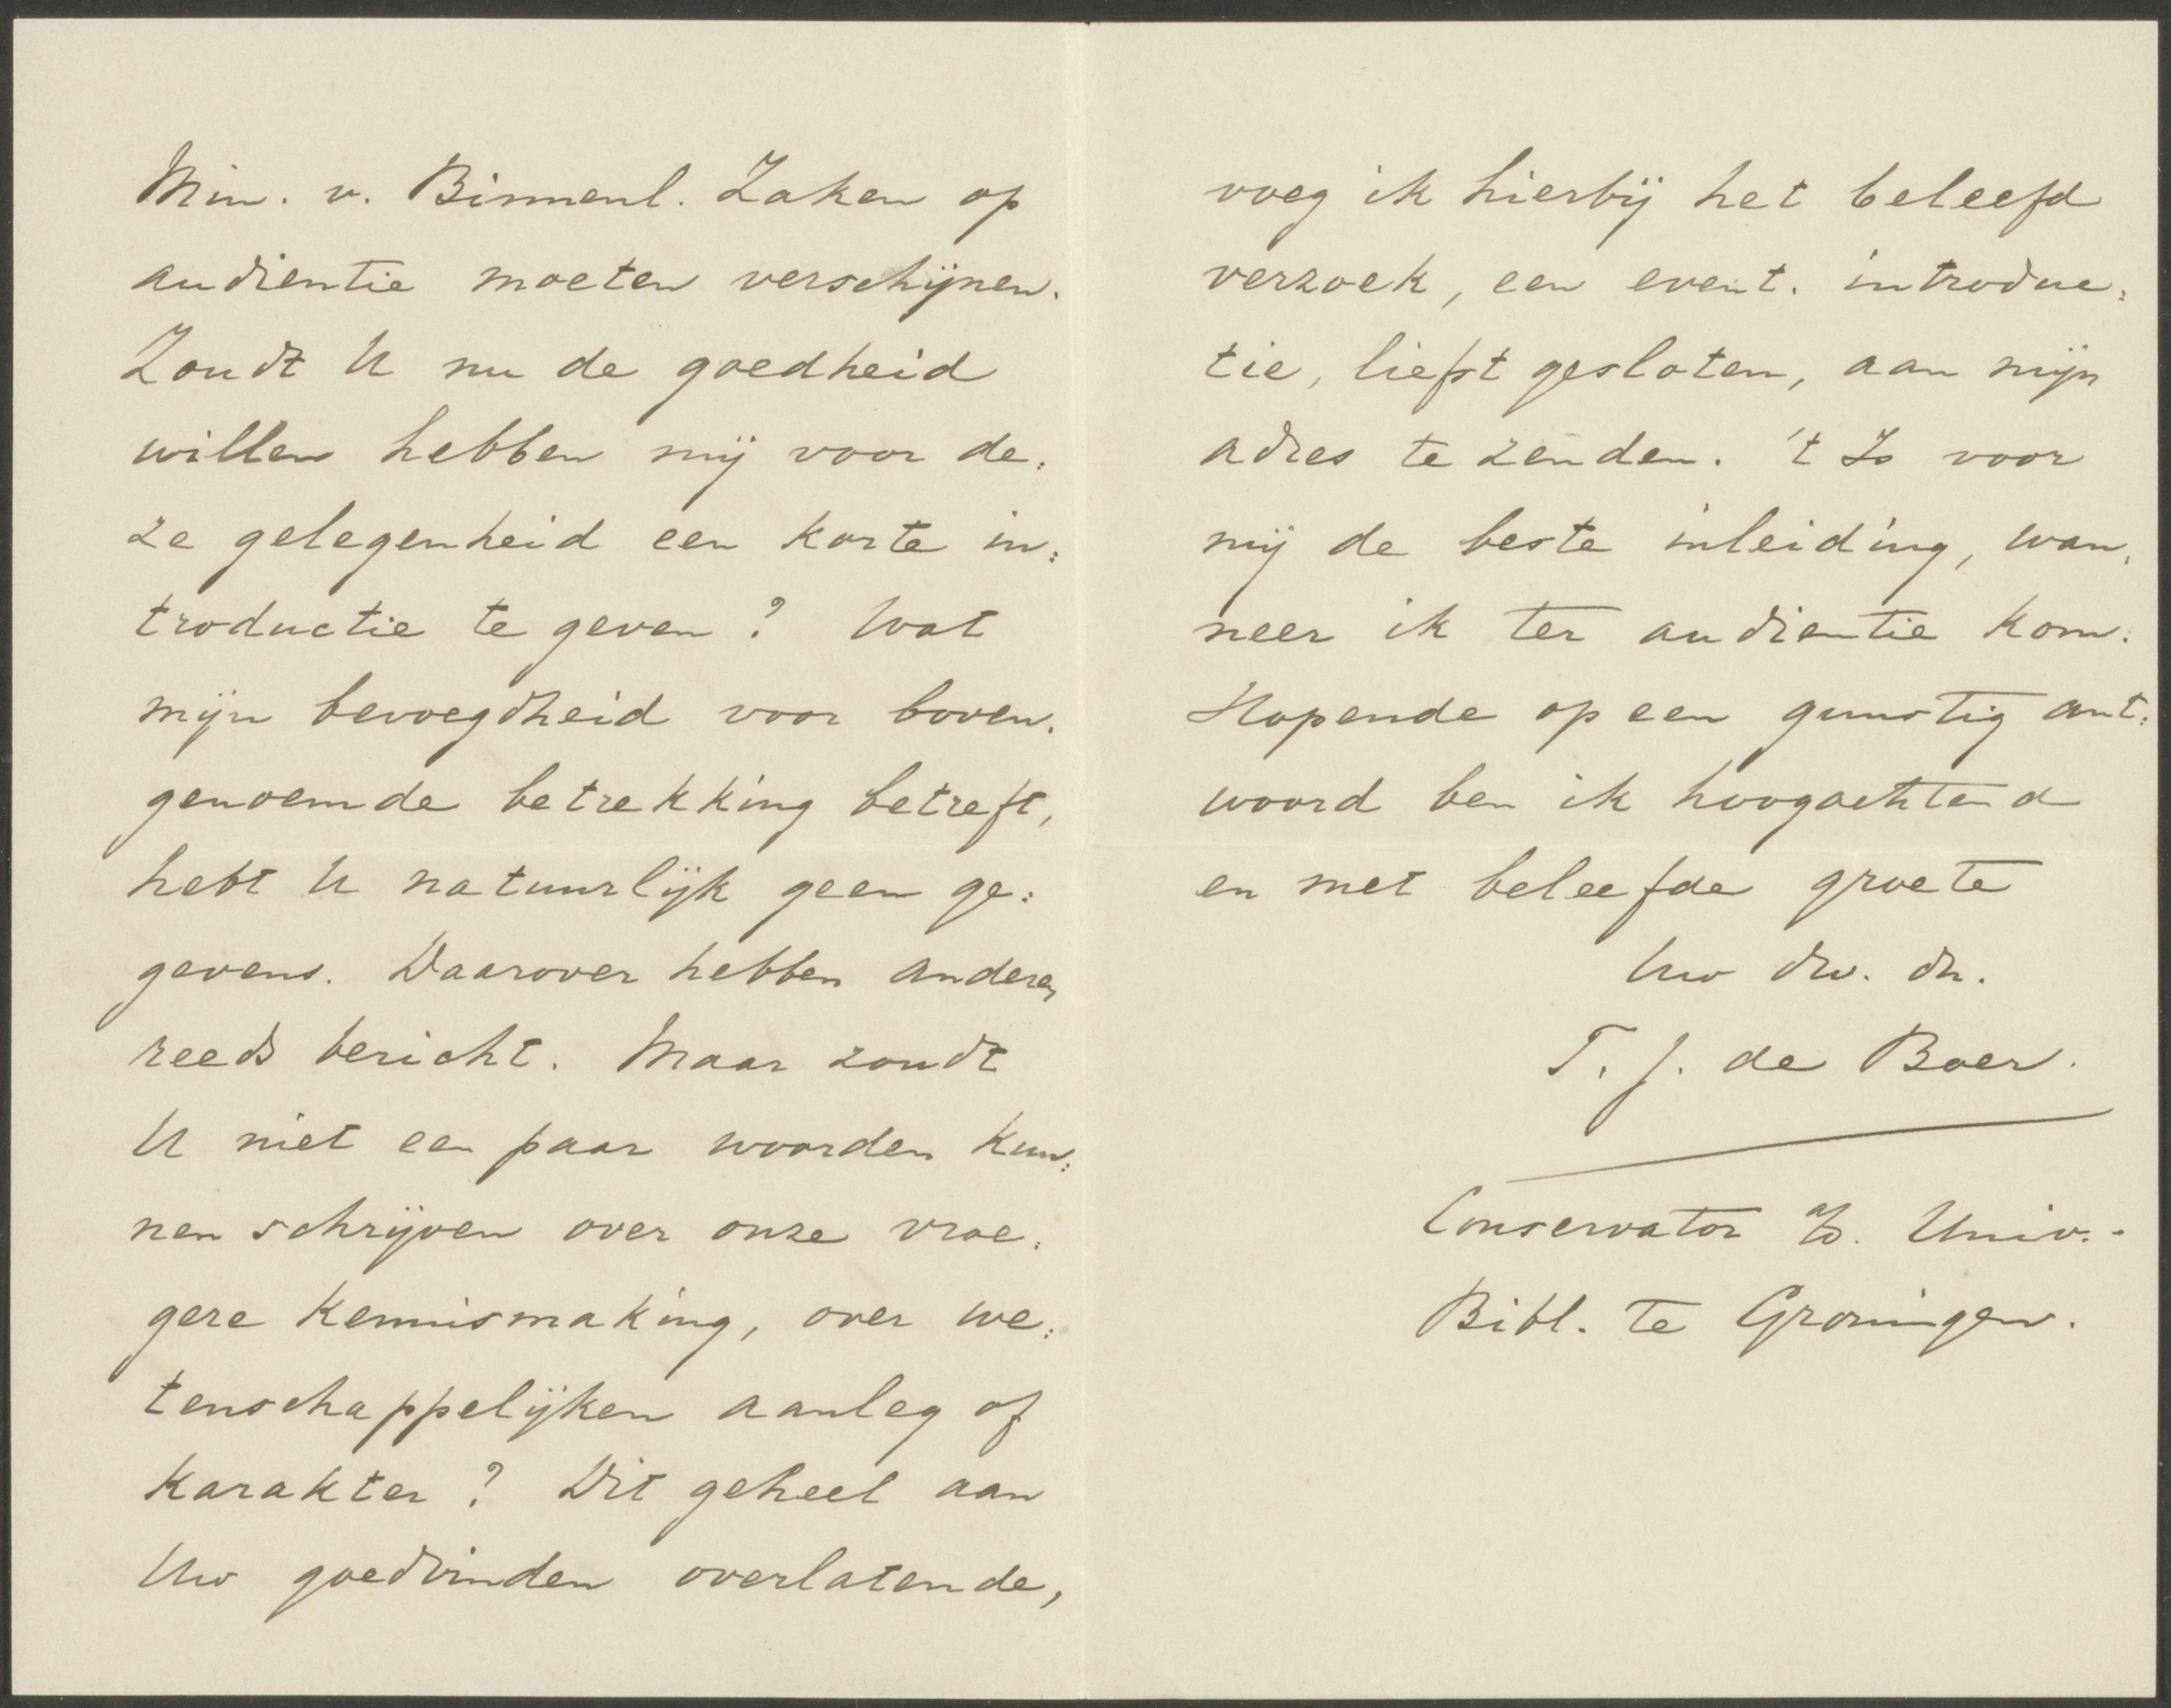 Min. v. Binnenl. Zaken op
audientie moeten verschijnen.
Zoudt U nu de goedheid
willen hebben mij voor de:
ze gelegenheid een korte in:
troductie te geven? Wat
mijn bevoegdheid voor boven:
genoemde betrekking betreft,
hebt U natuurlijk geen ge:
gevens. Daarover hebben anderen
reeds bericht. Maar zoudt
U niet een paar woorden kun:
nen schrijven over onze vroe:
gere kennismaking, over we:
tenschappelijken aanleg of
karakter? Dit geheel aan
Uw goedvinden overlatende,
voeg ik hierbij het beleefd
verzoek, een event. introduc:
tie, liefst gesloten, aan mijn
adres te zenden. 't Is voor
mij de beste inleiding, wan:
neer ik ter audientie kom.
Hopende op een gunstig ant:
woord ben ik hoogachtend
en met beleefde groete
Uw dw. dn.
T. J. de Boer.
Conservator a/d. Univ.-
Bibl. te Groningen.